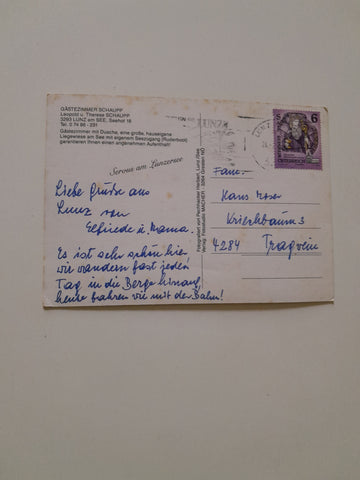 GÄSTEZIMMER SCHAUPP
Leopold u. Therese SCHAUPP
3293 LUNZ am SEE, Seehof 18
Tel. 0 74 86 - 291
Gästezimmer mit Dusche, eine große, hauseigene
Liegewiese am See mit eigenem Seezugang (Ruderboot)
garantieren Ihnen einen angenehmen Aufenthalt!
Servus am Lunzersee
Liebe Grüße aus
Lunz von
Elfriede u. Mama.
Es ist sehr schön hier,
wir wandern fast jeden
Tag in die Berge hinauf,
heute fahren wir mit der Bahn!
Verlag: Fotostudio MACHER - 3264 Gresten NÖ
LUNZ
6
Fam.
Hans
Kriechbaum 3
4284 Tragwein